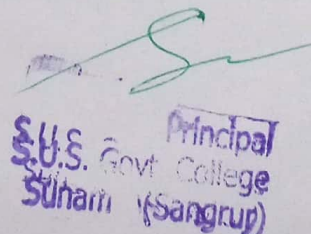 Principal
S.U.S. Govt College
Sunam (Sangrur)